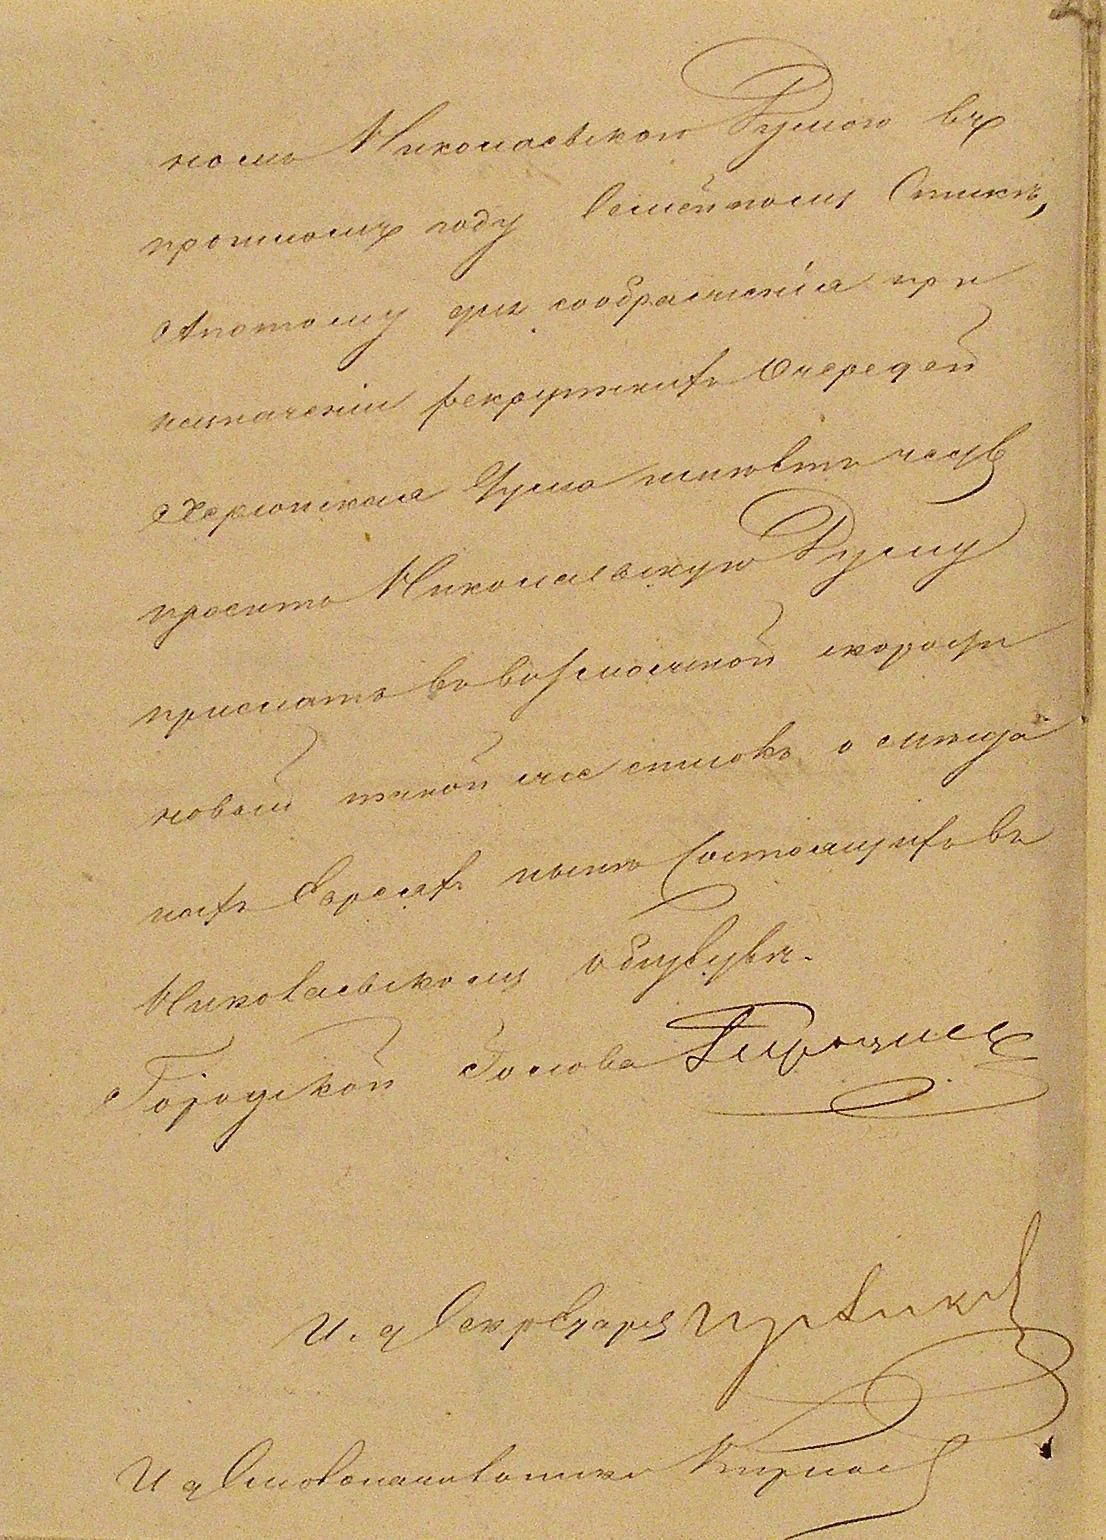 номъ Николаевскою Думою въ
прошломъ году Семейному Списку,
А потому для соображенія при
назначеніи рекрутскихъ Очередей
Херсонская Дума имѣетъ честь
просить Николаевскую Думу
прислать въ возможной скорости
новый такой же списокъ о мѣща
нахъ Евреяхъ нынѣ Состоящихъ въ
Николаевскому обществѣ.
Городской Голова
И. д Секретаря
И д Столоначальника